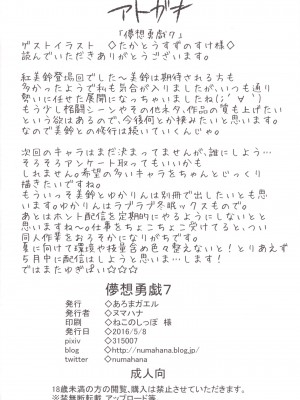 アトガキ
「儚想勇戯7」
ゲストイラスト ◇たかとうすずのすけ様◇
読んでいただきありがとうございます。
紅美鈴登場回でした～美鈴は期待される方も
多かったようで私も気合が入りましたが、いつも通り
勢いに任せた展開になっちゃいましたね(;´∀｀)
もう少し格闘シーンとかそのネタ、作品の質も上げたい
という欲はあるので、今後何とか挟みたいと思います。
なので美鈴との修行は続いていくんじゃ。
次回のキャラはまだ決まってませんが、誰にしよう…
そろそろアンケート取ってもいいかも
しれません。希望の多いキャラをちゃんとじっくり
描きたいですね。
もういっそ美鈴とゆかりんは別冊で出したいとも思
います。ゆかりんはラブラブ冬眠ックスもので。
あとはホント配信を定期的にやるようにしないとと
思いますね～。仕事をちょこちょこ受けてると、つい
同人作業をおろそかになりがちです。
夏に向けて環境や枝量含め色々整えないと！とりあえず
5月中に配信はしようと思います…！
ではまたゆぎぱい☆☆☆
儚想勇戯7
発行 ◇あろまガエル
発行者 ◇ヌマハナ
印刷 ◇ねこのしっぽ 様
発行日 ◇2016/5/8
pixiv ◇315007
blog ◇http://numahana.blog.jp/
twitter ◇numahana
成人向
18歳未満の方の閲覧、購入は禁止させていただきます。
※無断転載 アップロード等、